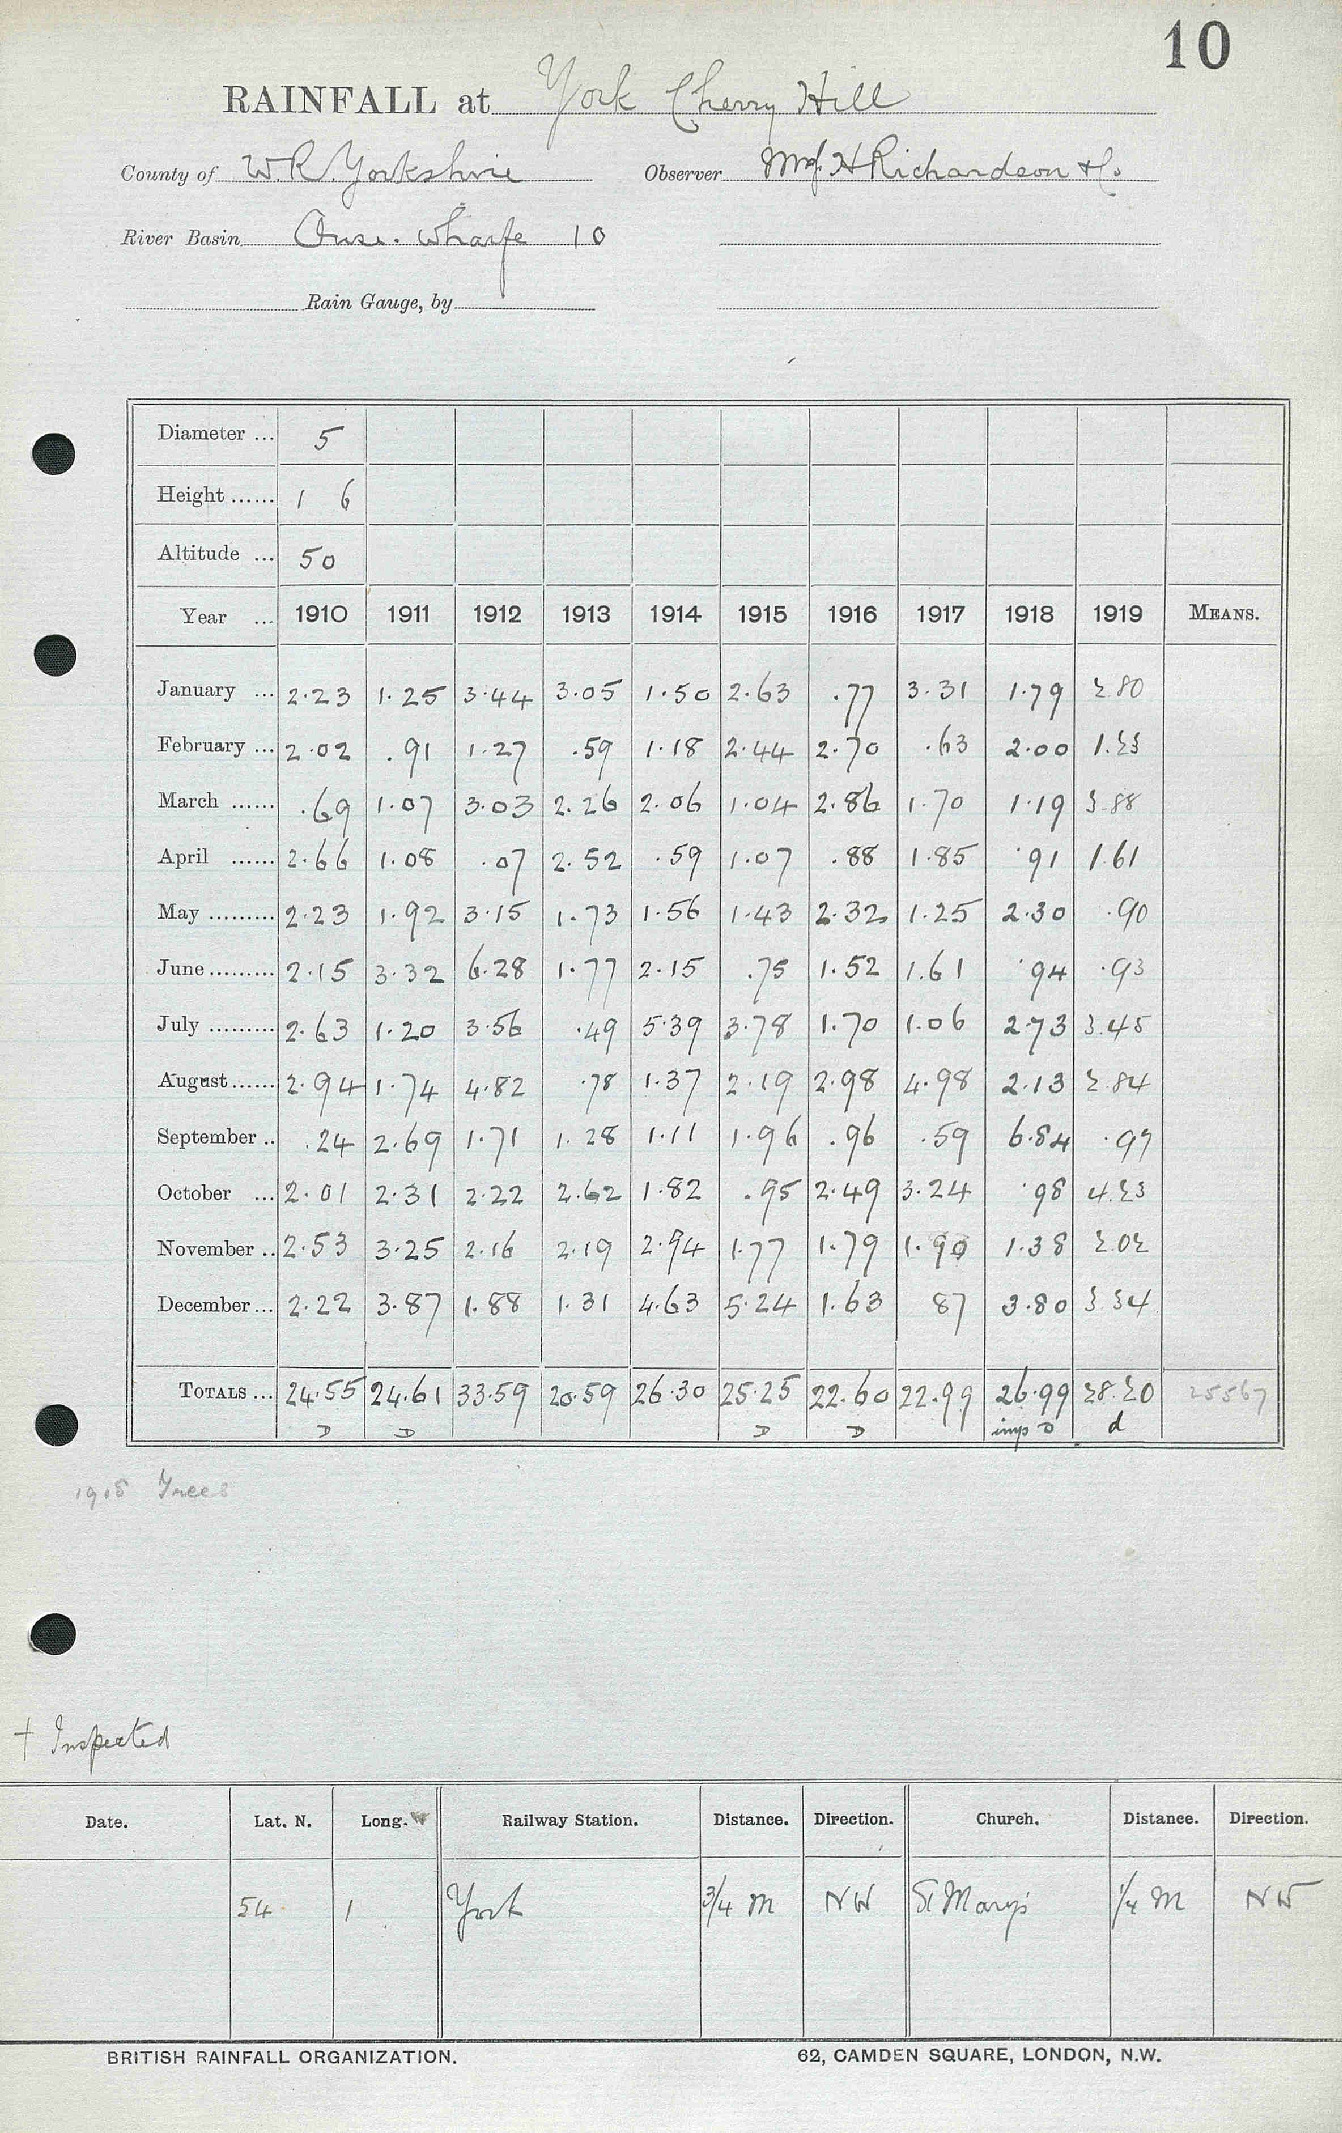 10
RAINFALL at York Cherry Hill
County of W.R. Yorkshire Observer Mssrs. H Richardson & Co.
River Basin Ouse. Wharfe 10
Rain Gauge, by
Diameter ... 5
Height ...... 1 6
Altitude ... 50
Year ... 1910 1911 1912 1913 1914 1915 1916 1917 1918 1919 MEANS.
January ... 2.23 1.25 3.44 3.05 1.50 2.63 .77 3.31 1.79 2.80
February ... 2.02 .91 1.27 .59 1.18 2.44 2.70 .63 2.00 1.23
March ...... .69 1.07 3.03 2.26 2.06 1.04 2.86 1.70 1.19 3.88
April ...... 2.66 1.08 .07 2.52 .59 1.07 .88 1.85 .91 1.61
May ......... 2.23 1.92 3.15 1.73 1.56 1.43 2.32 1.25 2.30 .90
June ......... 2.15 3.32 6.28 1.77 2.15 .75 1.52 1.61 .94 .93
July ......... 2.63 1.20 3.56 .49 5.39 3.78 1.70 1.06 2.73 3.45
August ...... 2.94 1.74 4.82 .78 1.37 2.19 2.98 4.98 2.13 2.84
September .. .24 2.69 1.71 1.28 1.11 1.96 .96 .59 6.84 .97
October ... 2.01 2.31 2.22 2.62 1.82 .95 2.49 3.24 .98 4.23
November .. 2.53 3.25 2.16 2.19 2.94 1.77 1.79 1.90 1.38 2.02
December ... 2.22 3.87 1.88 1.31 4.63 5.24 1.63 87 3.80 3 34
TOTALS ... 24.55 24.61 33.59 20.59 26.30 25.25 22.60 22.99 26.99 28.20 25567
D D D D imp D d
1918 Trees
† Inspected
Date. Lat. N. Long. W Railway Station. Distance. Direction. Church. Distance. Direction.
54 1 York 3/4 M NW St Mary's 1/4 M NW
BRITISH RAINFALL ORGANIZATION. 62, CAMDEN SQUARE, LONDON, N.W.